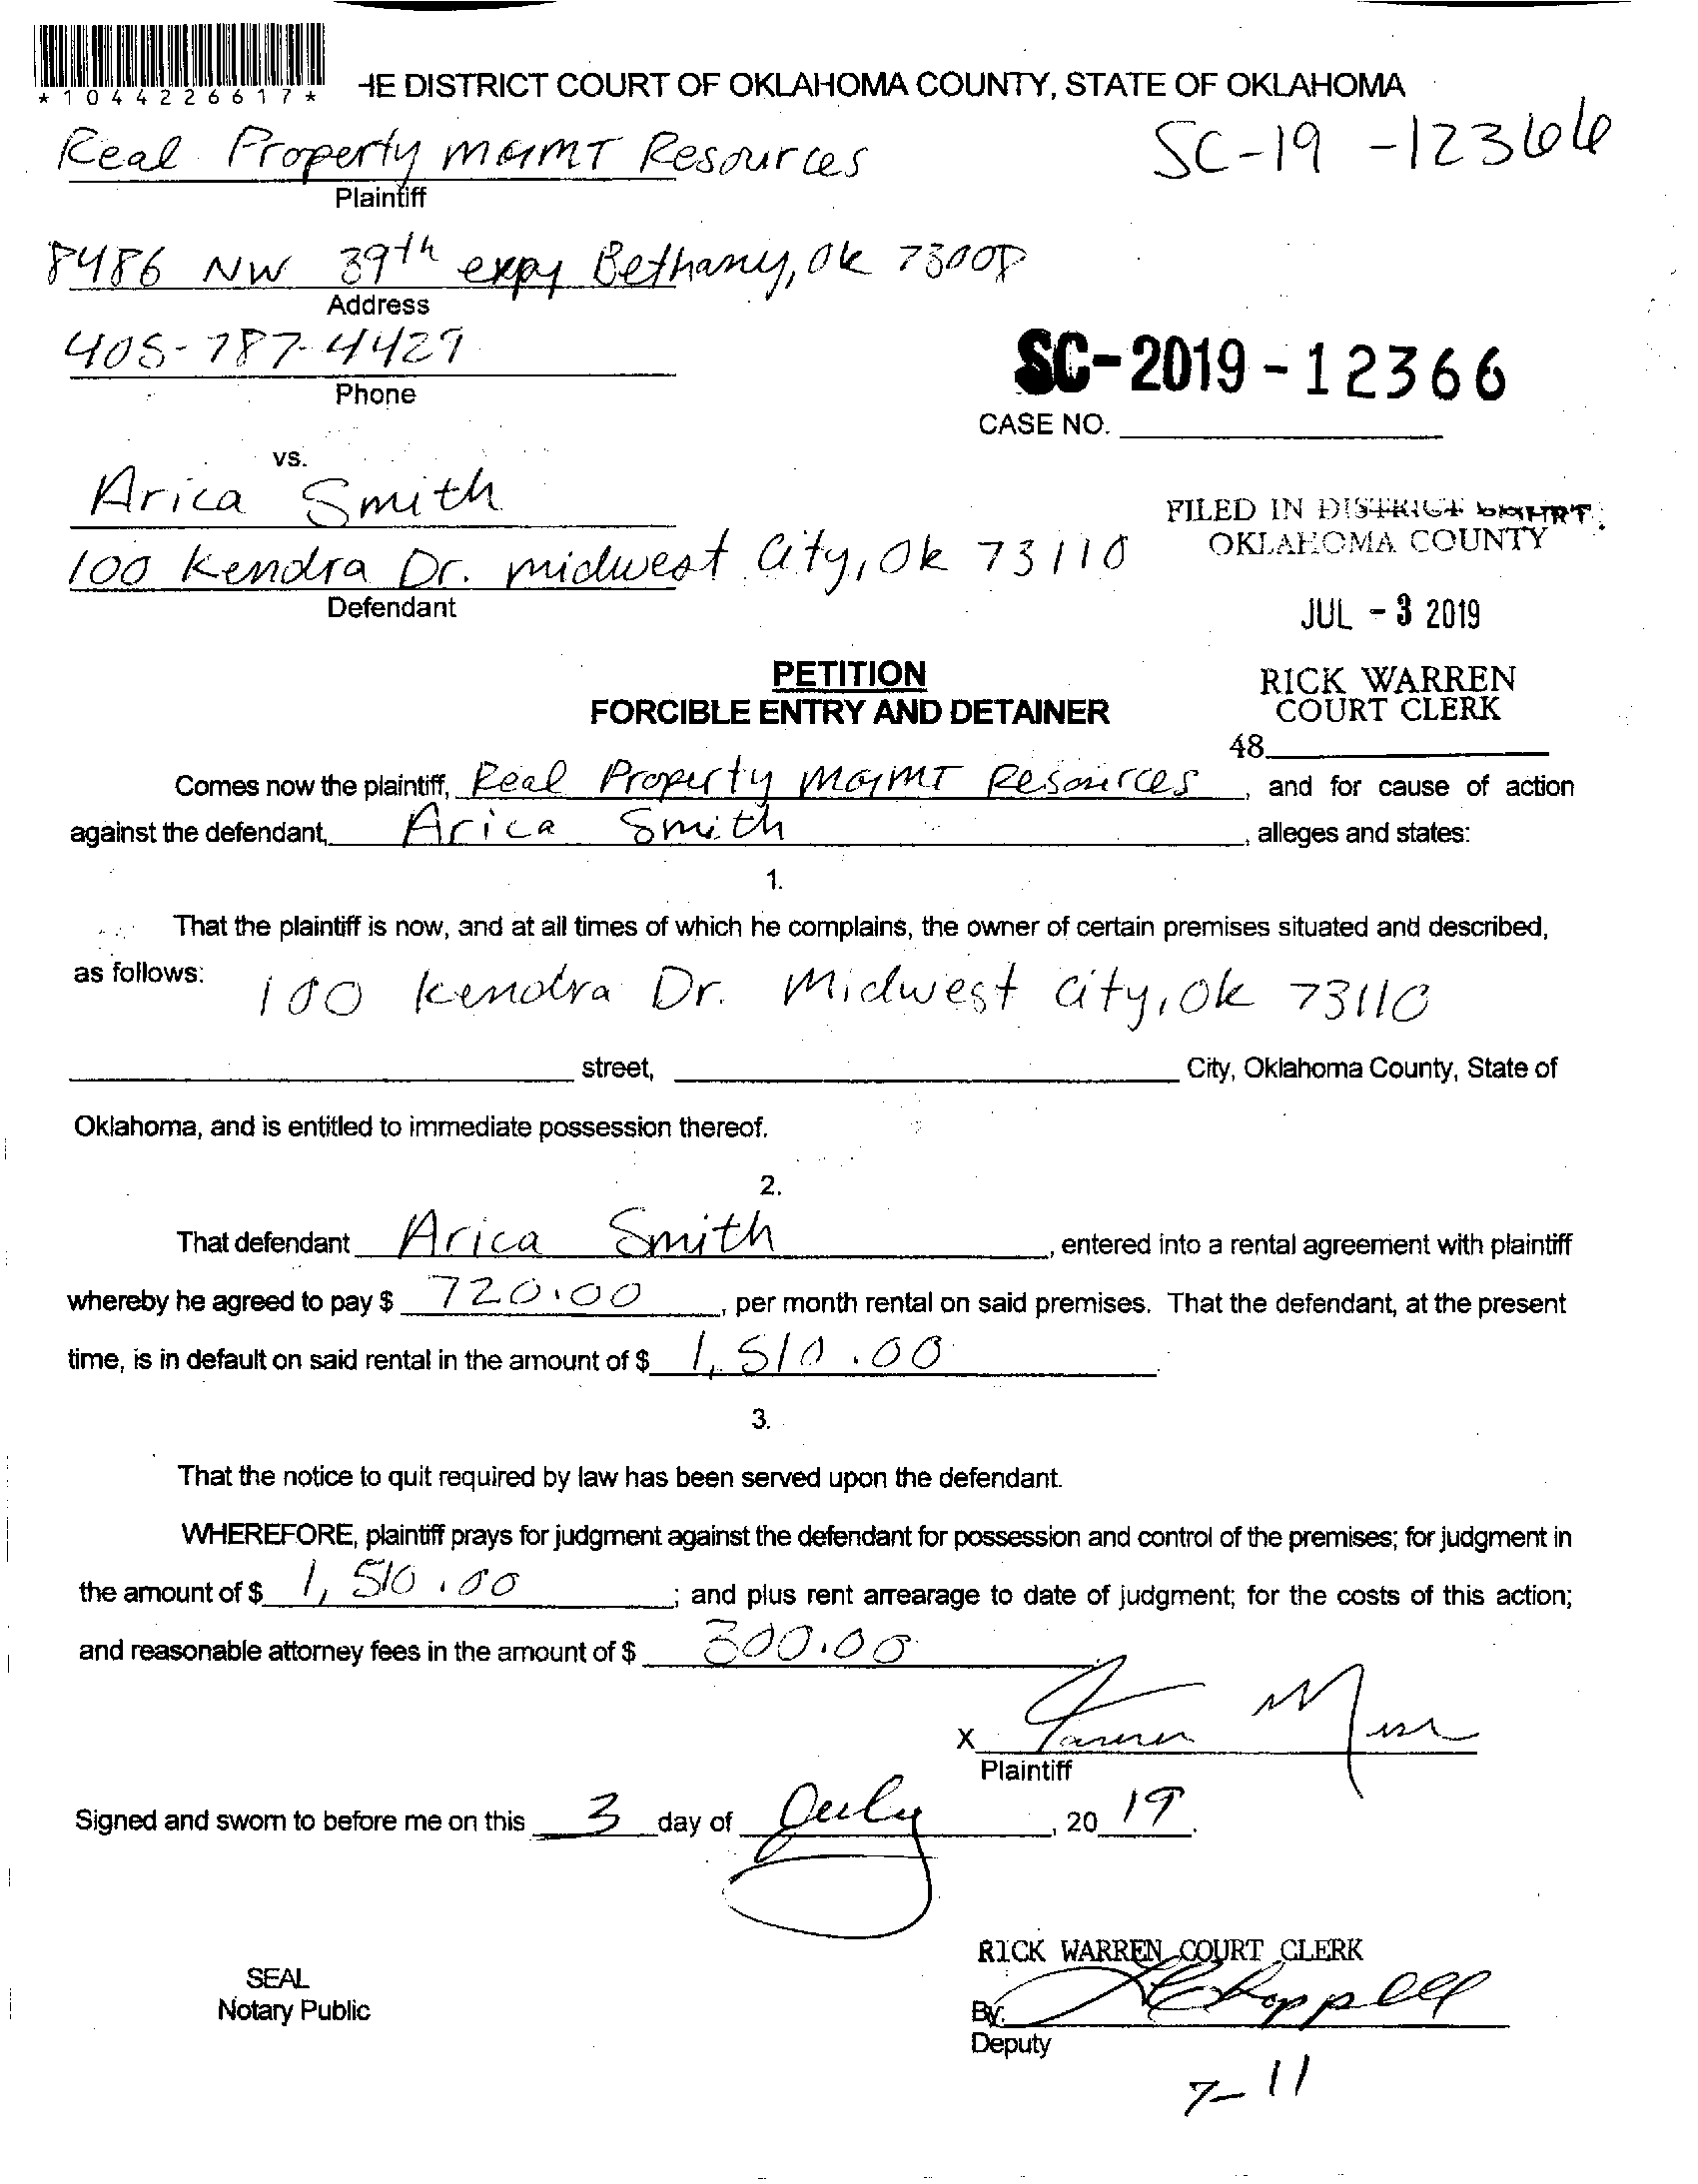 *1044226617*
HE DISTRICT COURT OF OKLAHOMA COUNTY, STATE OF OKLAHOMA
Real Property MGMT Resources
SC-19-12366
Plaintiff
8486 NW 39th expy Bethany, Ok 73008
Address
405-787-4429
Phone
SC-2019-12366
CASE NO.
vs.
Arica Smith
100 Kendra Dr. midwest City, Ok 73110
Defendant
FILED IN DISTRICT COURT
OKLAHOMA COUNTY
JUL - 3 2019
RICK WARREN
COURT CLERK
48
PETITION
FORCIBLE ENTRY AND DETAINER
Comes now the plaintiff, Real Property MGMT Resources, and for cause of action
against the defendant, Arica Smith, alleges and states:
1.
That the plaintiff is now, and at all times of which he complains, the owner of certain premises situated and described,
as follows: 100 Kendra Dr. Midwest City, Ok 73110
street, City, Oklahoma County, State of
Oklahoma, and is entitled to immediate possession thereof.
2.
That defendant Arica Smith, entered into a rental agreement with plaintiff
whereby he agreed to pay $ 720.00, per month rental on said premises. That the defendant, at the present
time, is in default on said rental in the amount of $ 1,510.00.
3.
That the notice to quit required by law has been served upon the defendant.
WHEREFORE, plaintiff prays for judgment against the defendant for possession and control of the premises; for judgment in
the amount of $ 1,510.00; and plus rent arrearage to date of judgment; for the costs of this action;
and reasonable attorney fees in the amount of $ 300.00.
X
Plaintiff
Signed and sworn to before me on this 3 day of July, 2019.
RICK WARREN COURT CLERK
SEAL
Notary Public
By: Chappell
Deputy
7-11